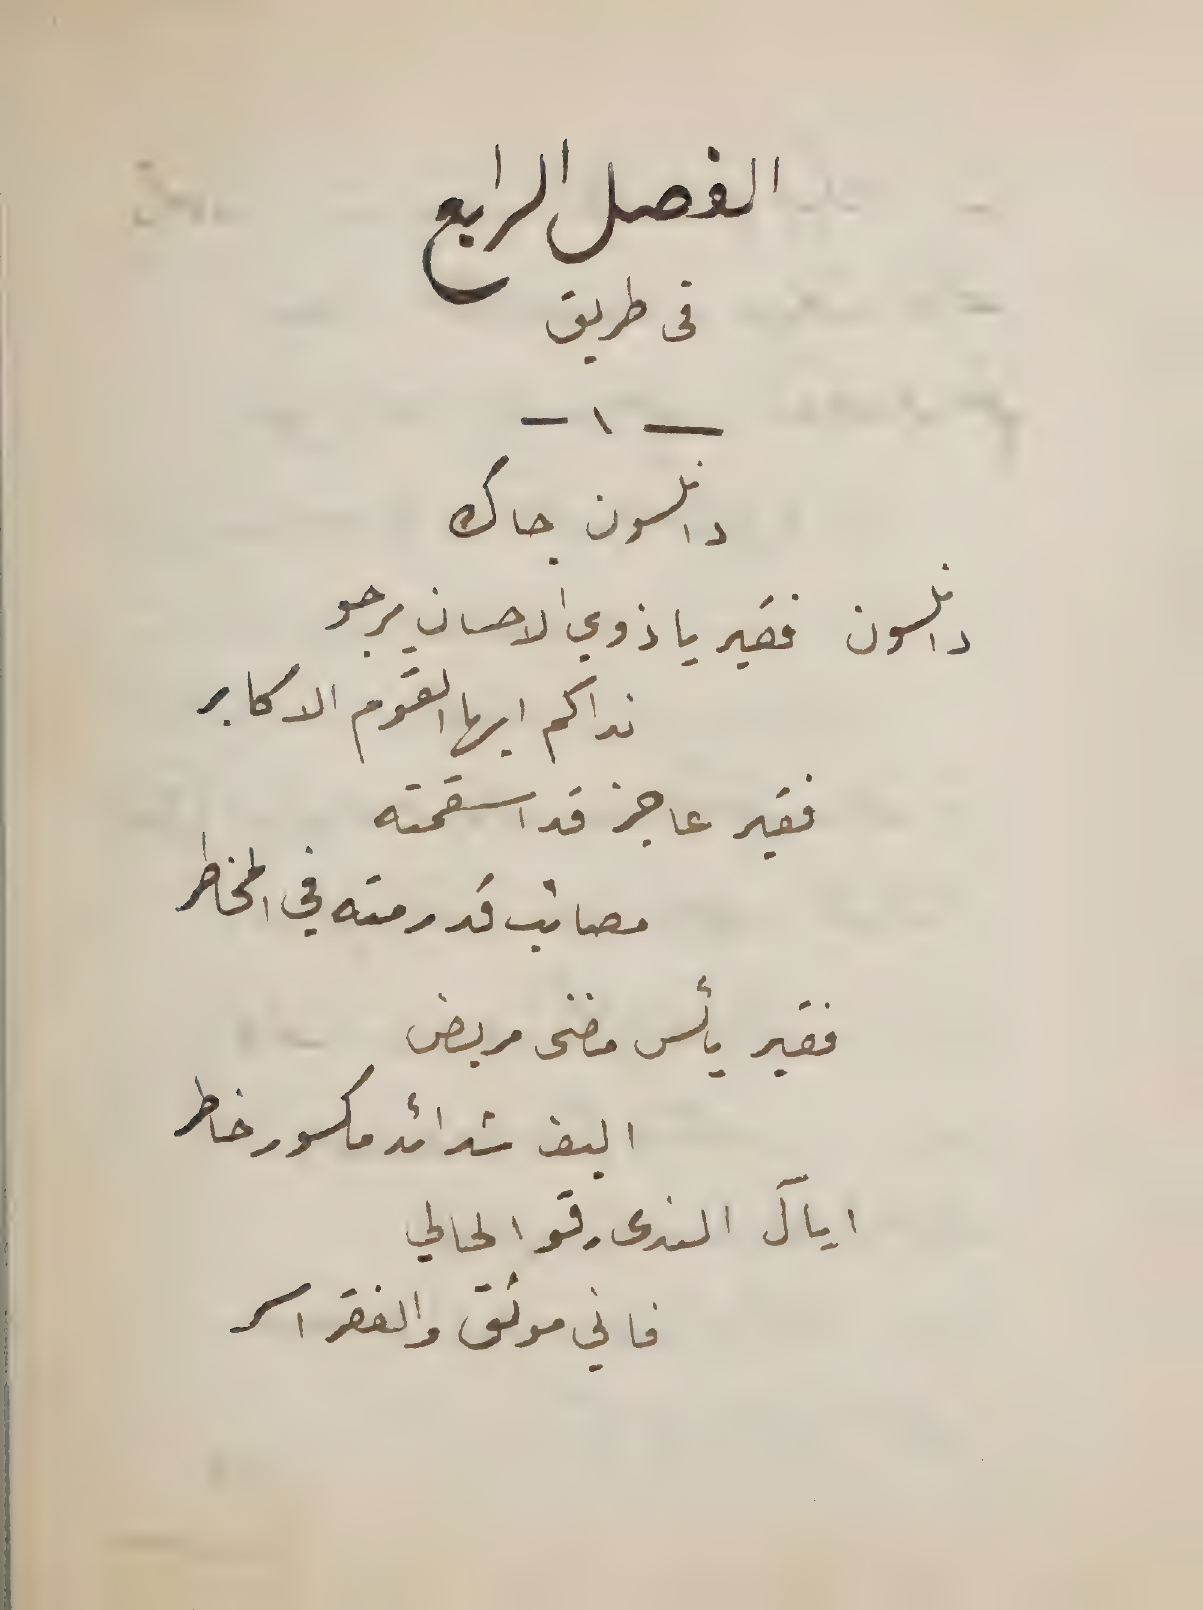 الفصل الرابع
فى طريق
— ١ —
دانلسون جاك
دانلسون فقير يا ذوي الاحسان يرجو
نداكم ايها القوم الاكابر
فقير عاجز قد اسقمته
مصائب قد رمته في المخاطر
فقير يأس مضنى مريض
اليف شدائد مكسور خاطر
ايا آل الندى رقوا لحالي
فاني موثق والفقر اسر